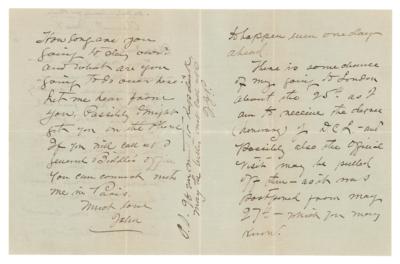 How long are you
going to stay over
and what are you
going to do over here.
Let me hear from
you. Possibly I might
get you on the phone
If you will call at
General Biddle's office
You can connect with
me in Paris.
Much love
John
may be
J.J.P.
to happen even one day
ahead.
There is some chance
of my going to London
about the 25th. as I
am to receive the degree
(honorary) of D.C.L. - and
Possibly also the Official
visit may be pulled
off then - as it was
Postponed from May
27th - which you may
know!